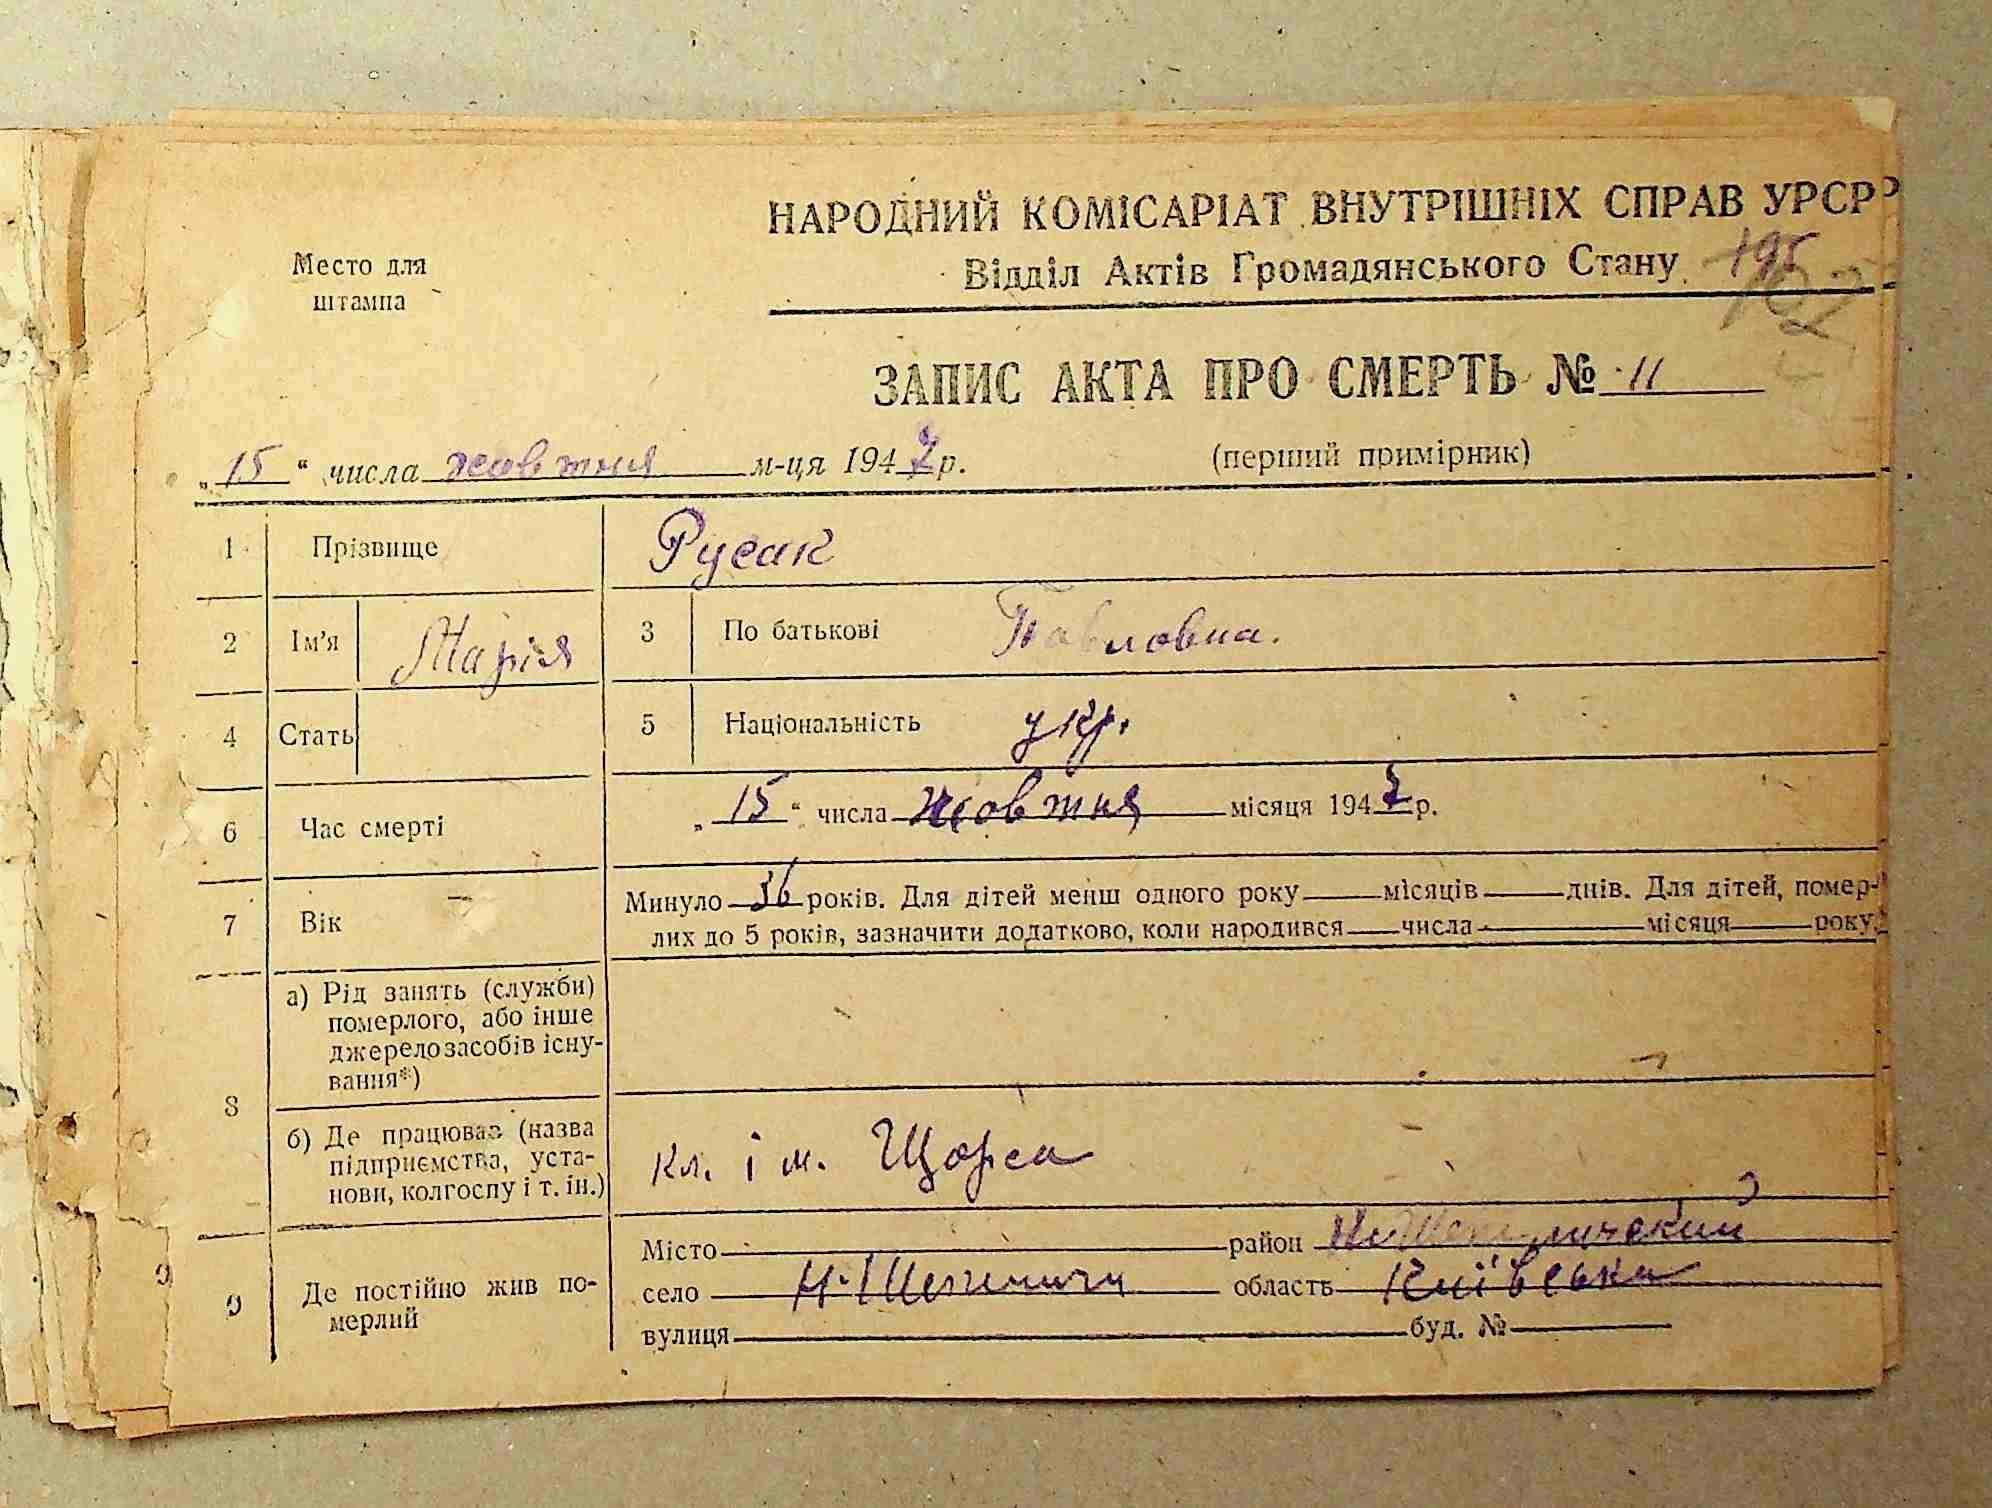 НАРОДНИЙ КОМІСАРІАТ ВНУТРІШНІХ СПРАВ УРСР
Место для
штампа
Відділ Актів Громадянського Стану 195
ЗАПИС АКТА ПРО СМЕРТЬ № 11
„15“ числа жовтня м-ця 1947 р.
(перший примірник)
1 Прізвище Русак
2 Ім'я Марія 3 По батькові Павловна.
4 Стать 5 Національність укр.
6 Час смерті „15“ числа жовтня місяця 1947 р.
7 Вік Минуло 36 років. Для дітей менш одного року місяців днів. Для дітей, помер-
лих до 5 років, зазначити додатково, коли народився числа місяця року.
8 а) Рід занять (служби)
померлого, або інше
джерело засобів існу-
вання*)
б) Де працював (назва
підприємства, уста-
нови, колгоспу і т. ін.)
кл. ім. Щорса
9 Де постійно жив по-
мерлий
Місто район
село Н-Шепеличи область Київська
вулиця буд. №